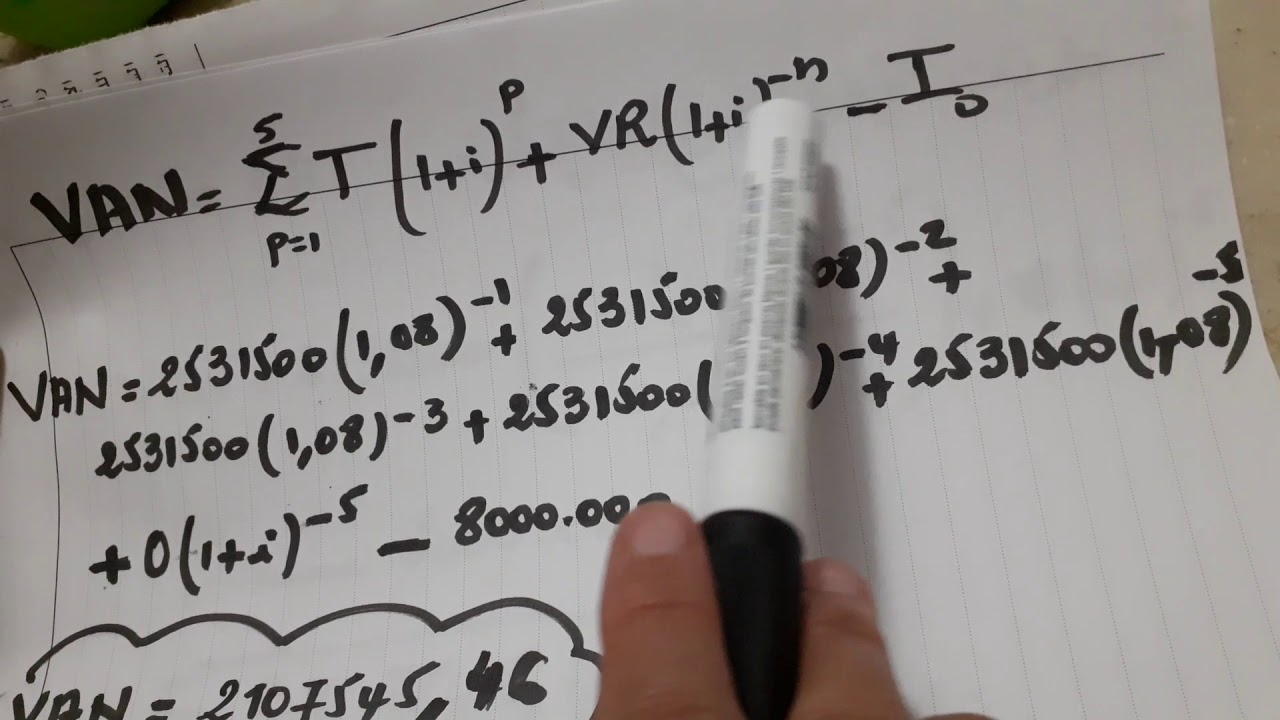 VAN = 5 Σ P=1 T (1+i)^P + VR(1+i)^-n - I₀
VAN = 2531500(1,08)^-1 + 2531500 08)^-2 +
2531500(1,08)^-3 + 2531500( )^-4 + 2531500(1,08)^-5
+ 0(1+i)^-5 - 8000.00
VAN = 2107545,46